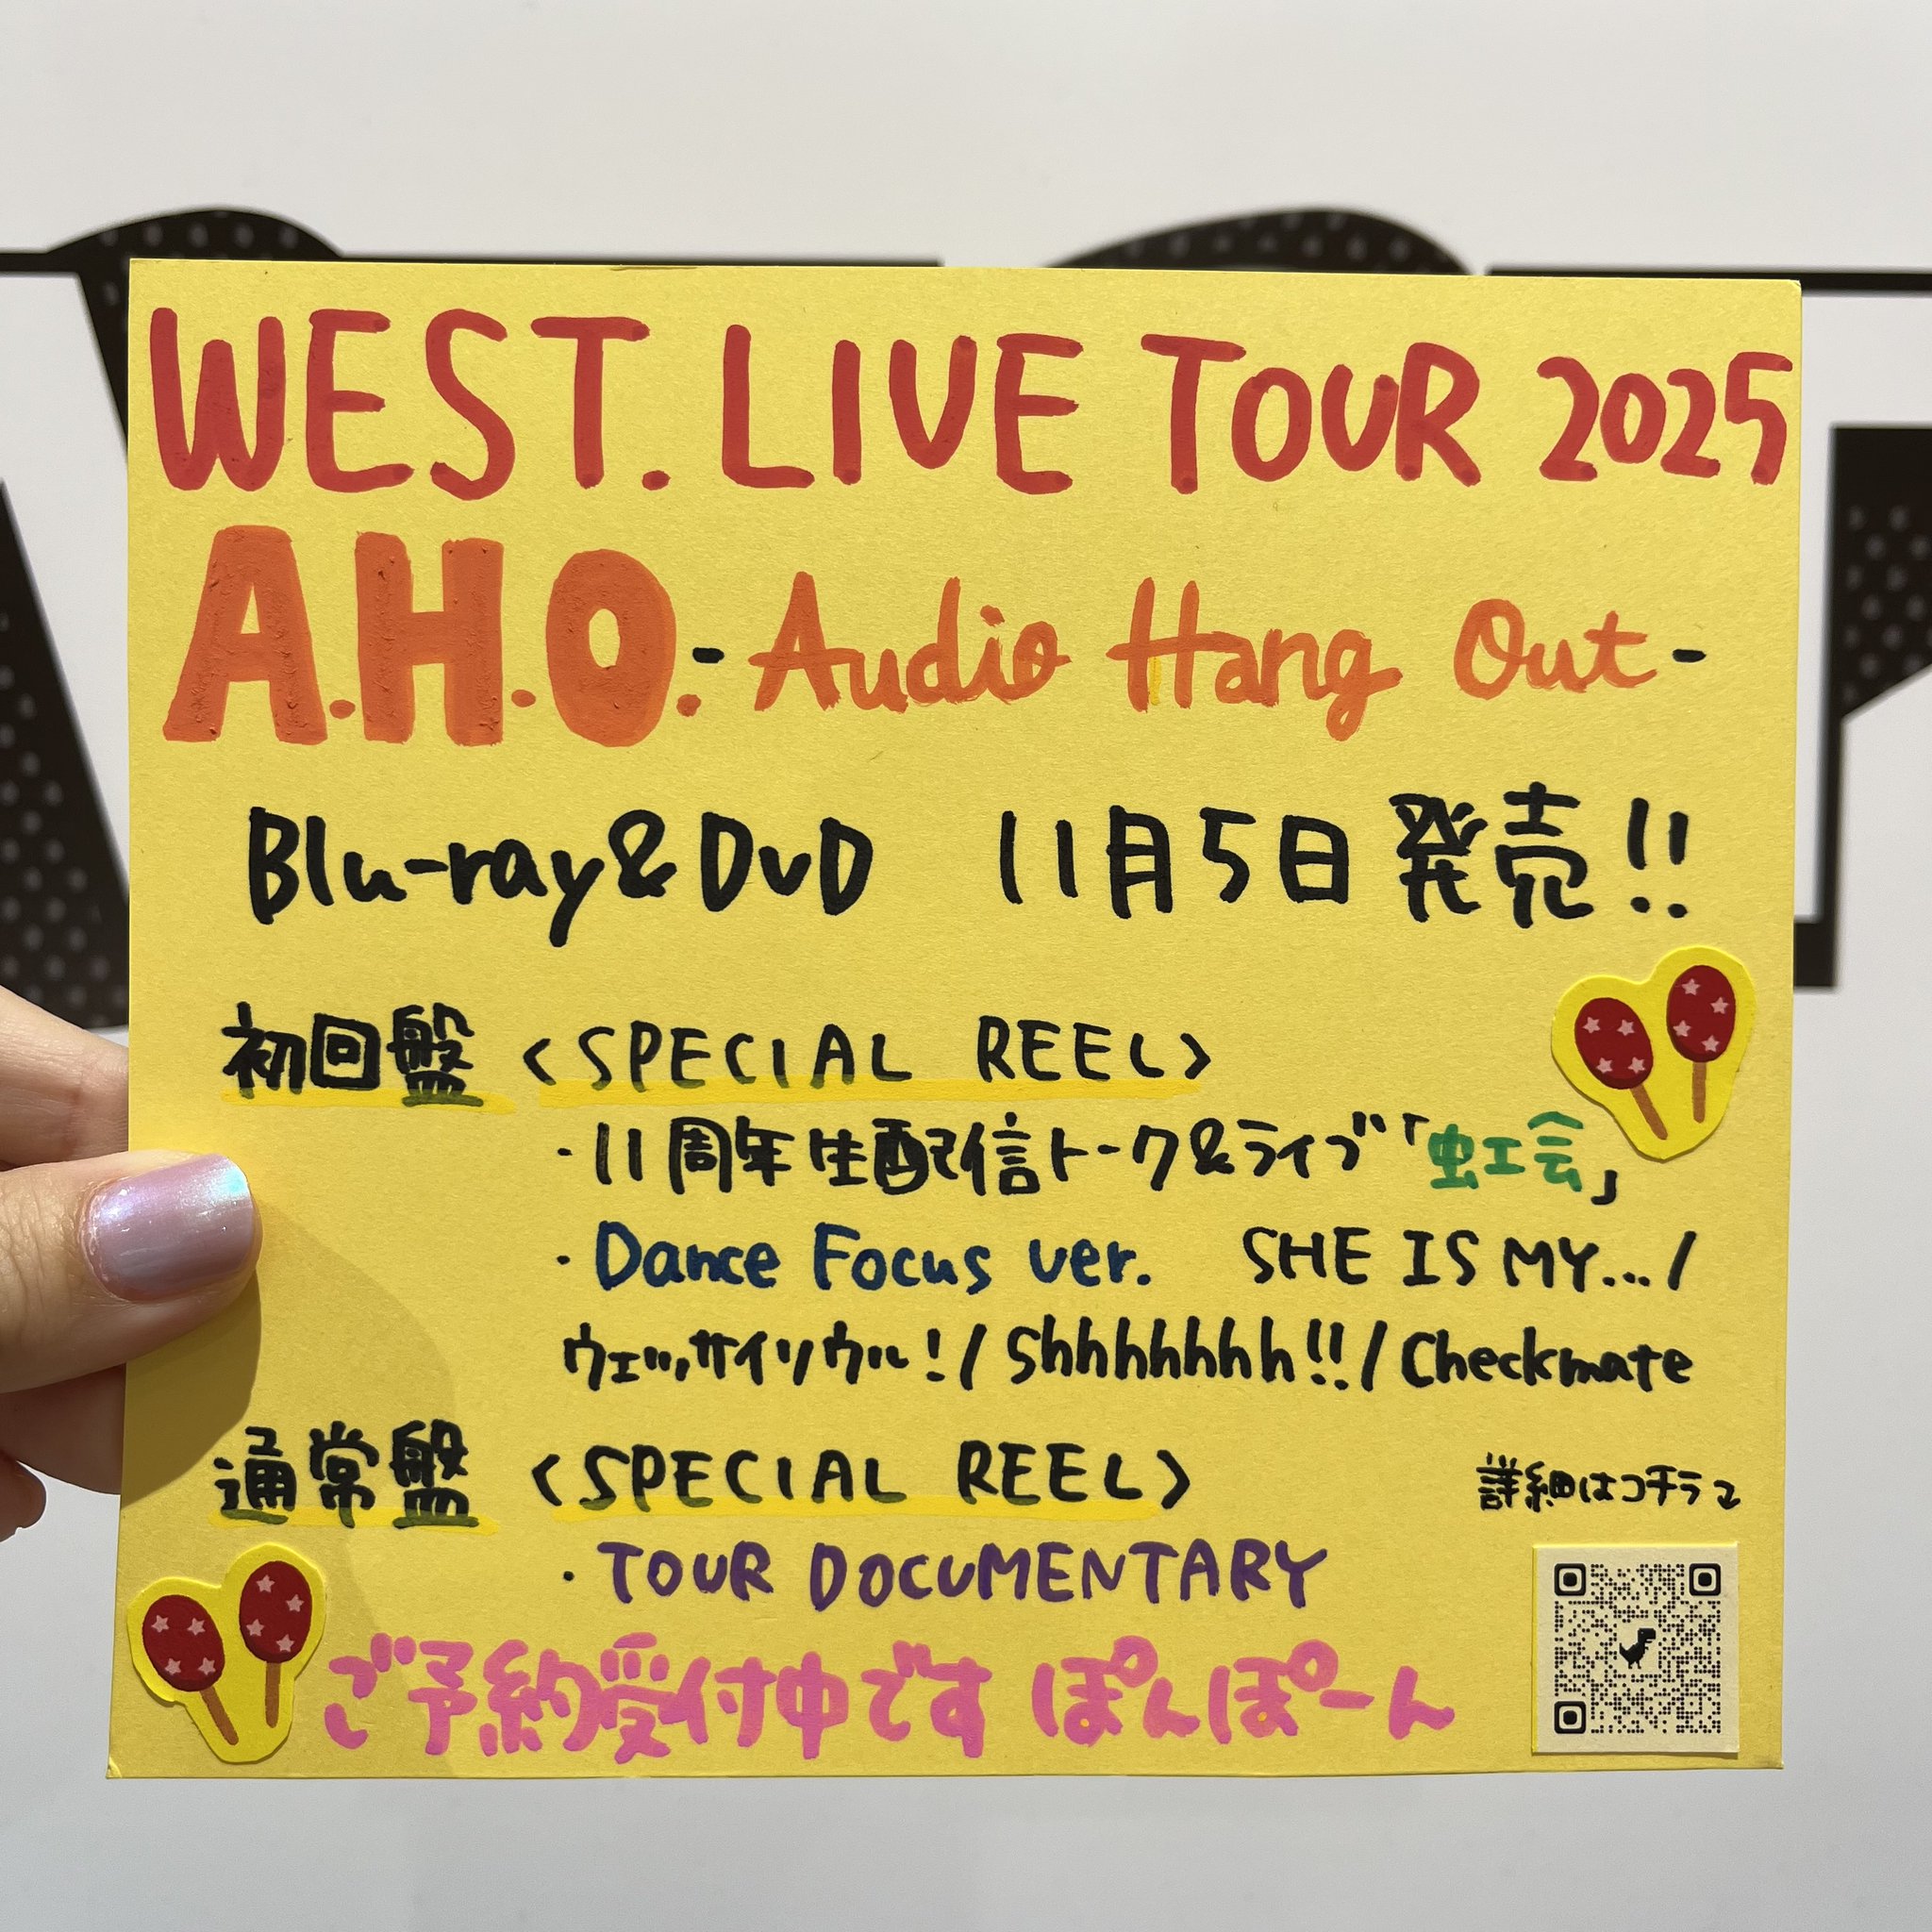 WEST. LIVE TOUR 2025
A.H.O. -Audio Hang Out-
Blu-ray&DVD 11月5日発売!!
初回盤 <SPECIAL REEL>
・11周年生配信トーク&ライブ「虹会」
・Dance Focus ver. SHE IS MY.../
ウェッサイソウル!/Shhhhhhh!!/Checkmate
通常盤 <SPECIAL REEL>
詳細はコチラ
・TOUR DOCUMENTARY
ご予約受付中です ぽんぽーん